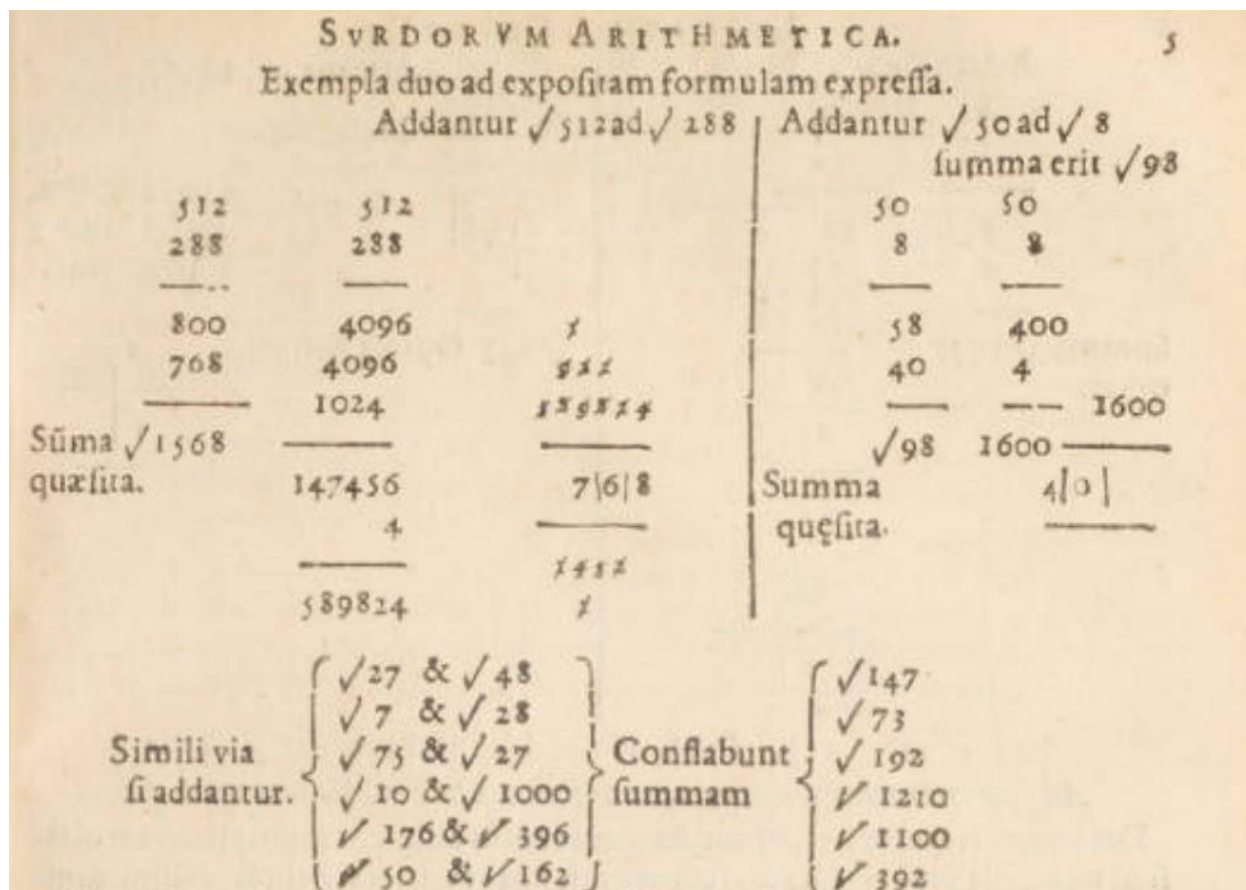 SVRDORVM ARITHMETICA. 5
Exempla duo ad expoſitam formulam expreſſa.
Addantur √512ad√ 288
512 512
288 288
800 4096
768 4096
1024
Sũma √1568
quæſita. 147456 7|6|8
4
589824
Addantur √50ad√ 8
ſumma erit √98
50 50
8 8
58 400
40 4
1600
√98 1600
Summa 4|0|
quęſita.
Simili via
ſi addantur.
√27 & √48
√7 & √28
√75 & √27
√10 & √1000
√176 & √396
√50 & √162
Conflabunt
ſummam
√147
√73
√192
√1210
√1100
√392